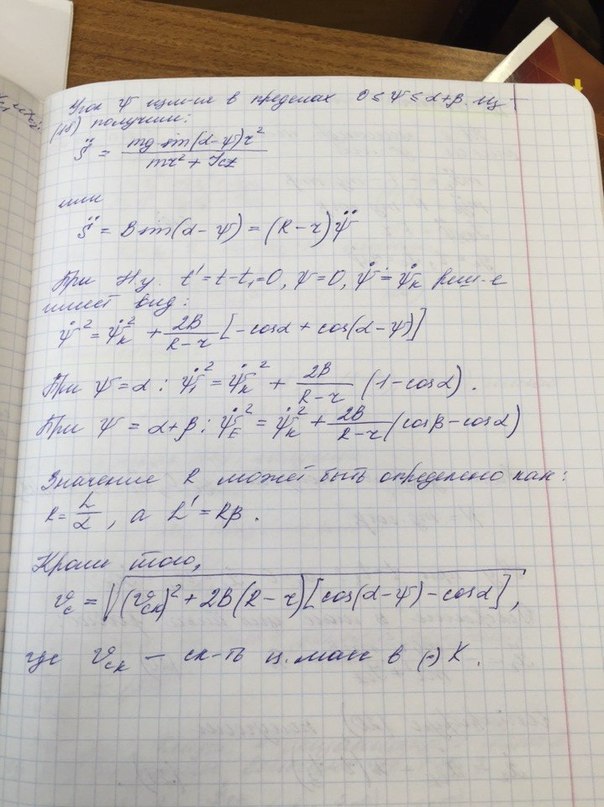 Угол ψ изм-ся в пределах 0 ≤ ψ ≤ α+β. Из
(18) получим:
S̈ = mg sin(α-ψ)r² / (mr² + Jcz)
или
S̈ = B sin(α-ψ) = (R-r)ψ̈
При Н.у. t' = t-t₁=0, ψ=0, ψ̇=ψ̇ₖ реш-е
имеет вид:
ψ̇² = ψ̇ₖ² + 2B/(R-r) [-cosα + cos(α-ψ)]
При ψ=α: ψ̇² = ψ̇ₖ² + 2B/(R-r) (1-cosα).
При ψ = α+β: ψ̇_E² = ψ̇ₖ² + 2B/(R-r) (cosβ-cosα)
Значение R может быть определено как:
R = L/α, а L' = Rβ.
Кроме того,
v_c = √((v_ck)² + 2B(R-r)[cos(α-ψ)-cosα]),
где v_ck – ск-ть ц. масс в (·) K.